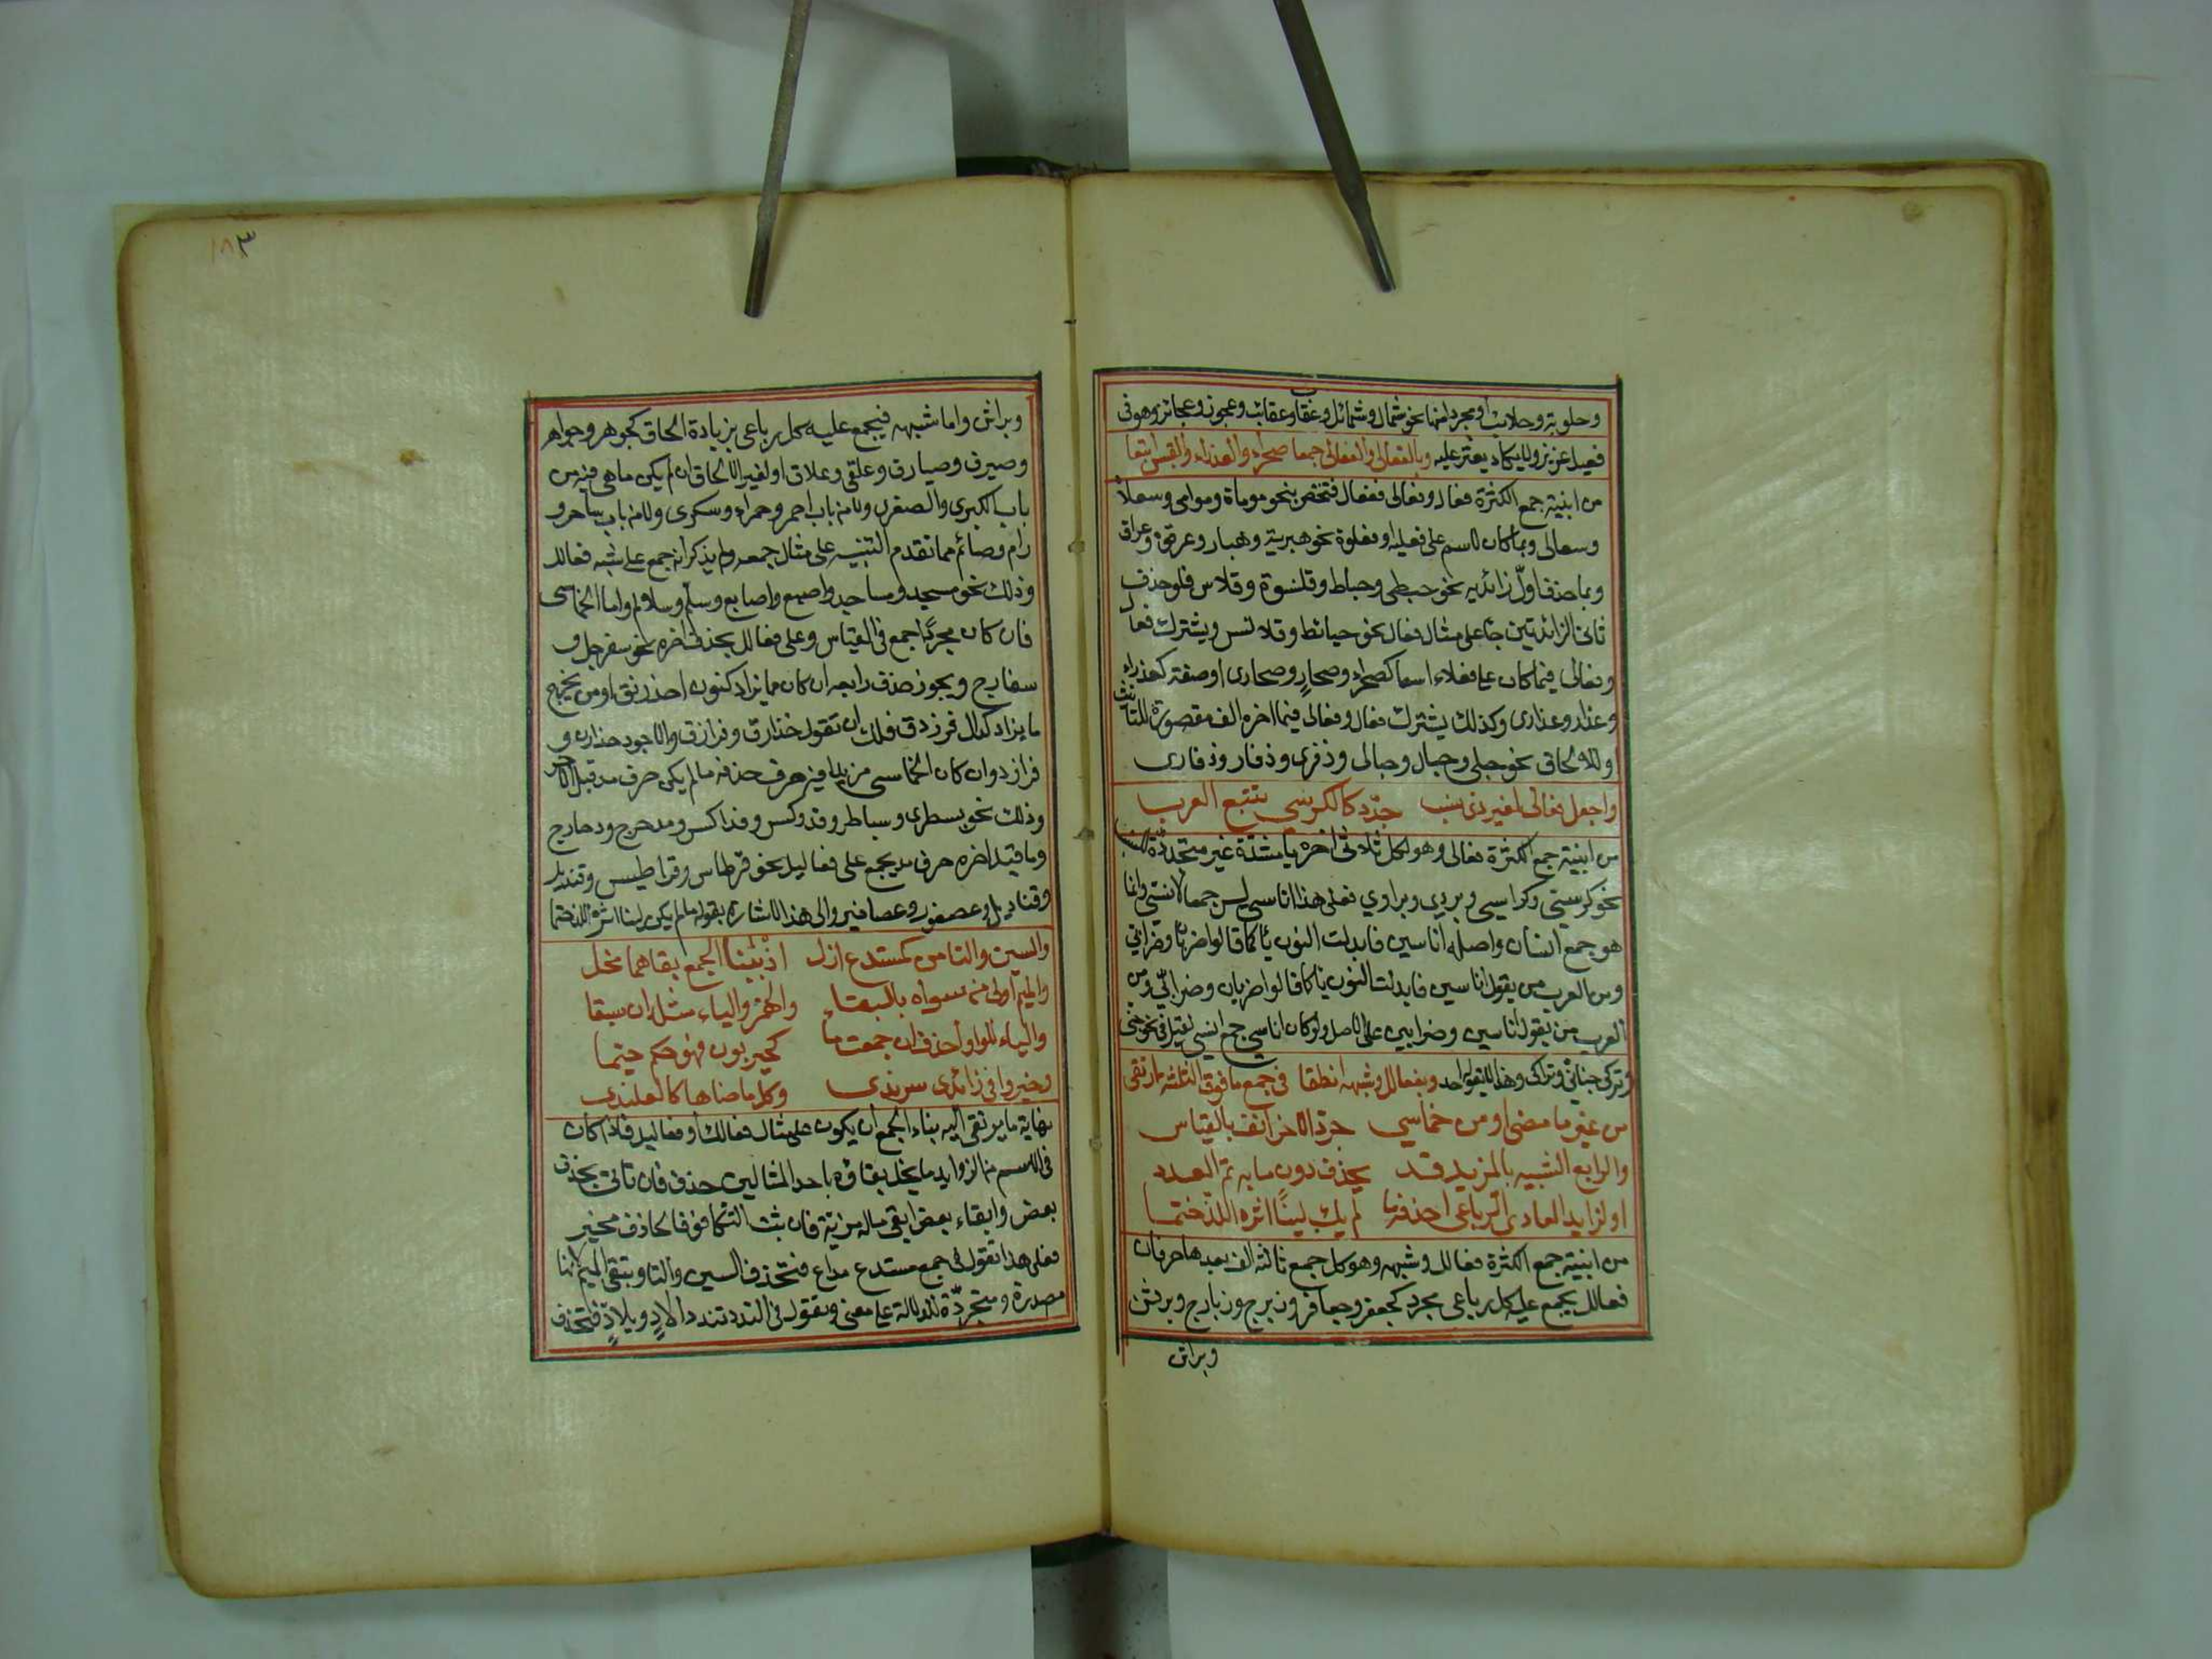 وحلوبة وحلائب او مجردا منها نحو شمال وشمائل وعقاب وعقائب وعجوز وعجائز وهو في
فعيل عزيز ولا يكاد يعثر عليه وبالفعالي والفعالى جمعا صحراء والعذراء والقيس اتبعا
من ابنية جمع الكثرة فعال وفعالى ففعال فتختص بنحو موماة وموامي وسعلاة
وسعالى وبما كان لاسم على فعلية او فعلوة نحو هبرية وهبار وعرقوة وعراق
وبما حذف اول زائديه نحو حبنطى وحباط وقلنسوة وقلاس فلو حذف
ثاني الزائدتين جاء على مثال فعال نحو حبانط وقلانس ويشترك فعال
وفعالى فيما كان على فعلاء اسما كصحراء وصحار وصحارى او صفة كعذراء
وعذار وعذارى وكذلك يشترك فعال وفعالى فيما اخره الف مقصورة للتأنيث
او للالحاق نحو حبلى وحبال وحبالى وذفرى وذفار وذفارى
واجعل فعالي لغير ذي نسب جدد كالكرسي تتبع العرب
من ابنية جمع الكثرة فعالي وهو لكل ثلاثي اخره يا مشددة غير متجددة للنسب
نحو كرسي وكراسي وبردي وبرادي فعلى هذا اناسي ليس جمعا لانسي وانما
هو جمع انسان واصله اناسين فابدلت النون يا كما قالوا ضربان وضرابي
ومن العرب من يقول اناسين فابدلت النون يا كما قالوا ضربان وضرابي ومن
العرب من يقول اناسين وضرابين على الاصل ولو كان اناسي جمع انسي لقيل في نحو جني
وتركي جناني وتراكي وهذا لا يقوله احد وبفعالل وشبهه انطقا في جمع ما فوق الثلثة ارتقى
من غير ما مضى او من خماسي جرد الاخر انف بالقياس
والرابع الشبيه بالمزيد قد يحذف دون ما به تم العدد
او لزايد العادي الرباعي احذفه ما لم يك لينا اثره اللذ ختما
من ابنية جمع الكثرة فعالل وشبهه وهو كل جمع ثالثه الف بعدها حرفان
فعالل يجمع عليه كل رباعي مجرد كجعفر وجعافر وزبرج وزبارج وبرثن
وبراثن
١٨٣
وبراثن واما شبهه فيجمع عليه كل رباعي بزيادة الحاق كجوهر وجواهر
وصيرف وصيارف وعلقى وعلاق او لغير الالحاق ان لم يكن ما هي فيه من
باب الكبرى والصغرى ولا من باب احمر وحمراء وسكرى ولا من باب ساحر و
رام وصائم مما تقدم التنبيه على مثال جمعه ولم يذكر انه جمع على شبه فعالل
وذلك نحو مسجد ومساجد واصبع واصابع وسلم وسلالم واما الخماسي
فان كان مجردا جمع في القياس وعلى فعالل بحذف اخره نحو سفرجل و
سفارج ويجوز حذف رابعه ان كان مما يزاد كنون احذرنق او من مخرج
ما يزاد كدال فرزدق فلك ان تقول خذارق وفرازق والاجود خذارن و
فرازد وان كان الخماسي مزيدا فيه حرف حذفه ما لم يكن حرف مد قبل الاخر
وذلك نحو بسطرى وسباطر وفدوكس وفداكس ومدحرج ودحارج
وما قبل اخره حرف مد يجمع على فعاليل نحو قرطاس وقراطيس وقنديل
وقناديل وعصفور وعصافير والى هذا الاشارة بقوله ما لم يكن لينا اثره اللذ ختما
والسين والتا من كمستدع ازل اذ ببنا الجمع بقاهما مخل
والميم اولى من سواه بالبقاء والهمز والياء مثله ان سبقا
والياء لا الواو احذف ان جمعت ما كحيزبون فهو حكم حتما
وخيروا في زائدي سرندى وكل ما ضاهاه كالعلندى
نهاية ما يرتقى اليه بناء الجمع ان يكون على مثال فعالل او فعاليل فاذا كان
في الاسم من الزوايد ما يخل بقاؤه باحد المثالين حذف فان تأتى بحذف
بعض وابقاء بعض ابقى ما له مزية فان ثبت التكافؤ فالحاذف مخير
فعلى هذا تقول في جمع مستدع مداع فتحذف السين والتا وتبقى الميم لانها
مصدرة ومتجردة للدلالة على معنى وتقول في الندد نلندد الاد ويلاد فتحذف